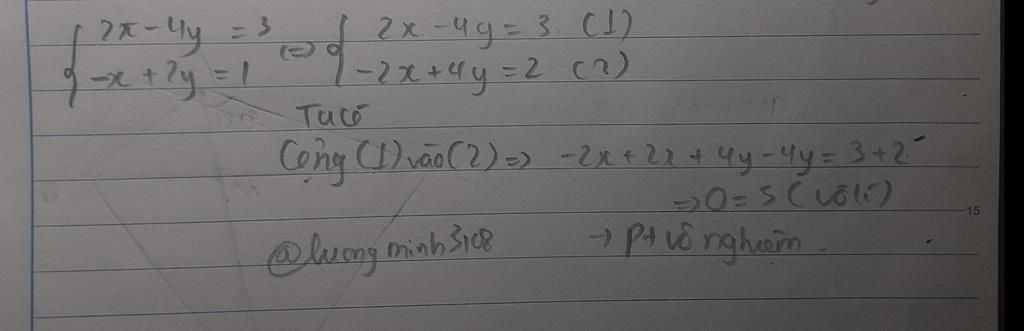 { 2x-4y = 3 <=> { 2x-4y=3. (1)
-x+2y=1 -2x+4y=2 (2)
Ta có
Cộng (1) vào (2) => -2x+2x+4y-4y=3+2
=> 0=5 (vô lí)
15
@luongminh3108 -> Pt vô nghiệm.